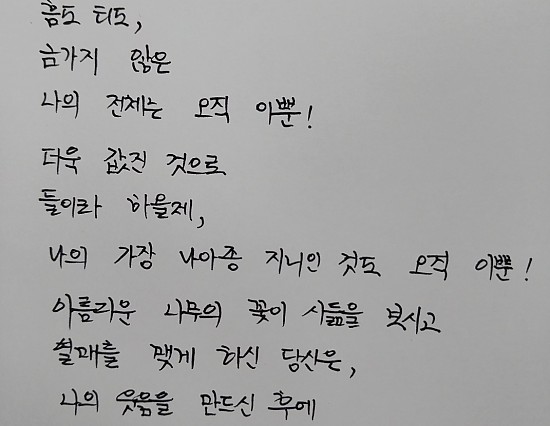 흠도 티도,
금가지 않은
나의 전체는 오직 이뿐!
더욱 값진 것으로
들이라 하올제,
나의 가장 나아종 지니인 것도 오직 이뿐!
아름다운 나무의 꽃이 시듦을 보시고
열매를 맺게 하신 당신은,
나의 웃음을 만드신 후에